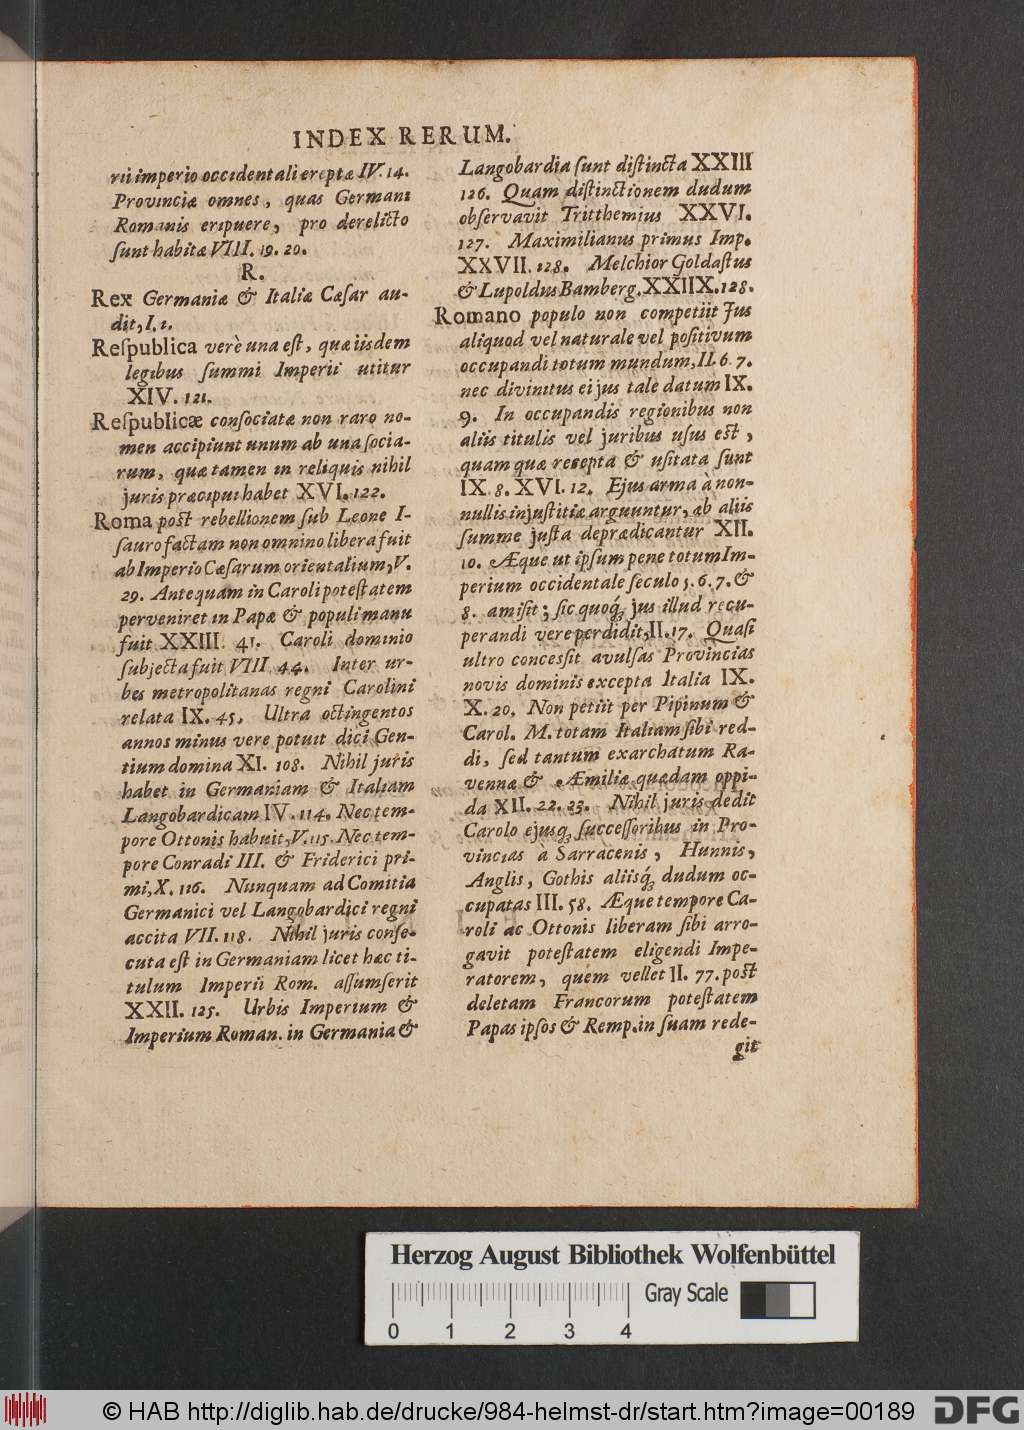 INDEX RERUM.
rii imperio occidentali ereptæ IV. 14.
Provinciæ omnes, quas Germani
Romanis eripuere, pro derelicto
ſunt habitæ VIII. 19. 20.
R.
Rex Germaniæ & Italiæ Cæſar au-
dit, I. 1.
Reſpublica verè una eſt, quæ iisdem
legibus ſummi Imperii utitur
XIV. 121.
Reſpublicæ conſociatæ non raro no-
men accipiunt unum ab una ſocia-
rum, quæ tamen in reliquis nihil
juris præcipui habet XVI. 122.
Roma poſt rebellionem ſub Leone I-
ſauro factam non omnino libera fuit
ab Imperio Cæſarum orientalium, V.
29. Antequam in Caroli poteſtatem
perveniret in Papæ & populi manu
fuit XXIII. 41. Caroli dominio
ſubjecta fuit VIII. 44. Inter ur-
bes metropolitanas regni Carolini
relata IX. 45. Ultra octingentos
annos minus vere potuit dici Gen-
tium domina XI. 108. Nihil juris
habet in Germaniam & Italiam
Langobardicam IV. 114. Nec tem-
pore Ottonis habuit, V. 115. Nec tem-
pore Conradi III. & Friderici pri-
mi, X. 116. Nunquam ad Comitia
Germanici vel Langobardici regni
accita VII. 118. Nihil juris conſe-
cuta eſt in Germaniam licet hæc ti-
tulum Imperii Rom. aſſumſerit
XXII. 125. Urbis Imperium &
Imperium Roman. in Germania &
Langobardia ſunt diſtincta XXIII
126. Quam diſtinctionem dudum
obſervavit Tritthemius XXVI.
127. Maximilianus primus Imp.
XXVII. 128. Melchior Goldaſtus
& Lupoldus Bamberg. XXIIX. 128.
Romano populo non competiit Jus
aliquod vel naturale vel poſitivum
occupandi totum mundum, II. 6. 7.
nec divinitus ei jus tale datum IX.
9. In occupandis regionibus non
aliis titulis vel juribus uſus eſt,
quam quæ recepta & uſitata ſunt
IX. 8. XVI. 12. Ejus arma à non-
nullis injuſtitiæ arguuntur, ab aliis
ſumme juſta deprædicantur XII.
10. Æque ut ipſum pene totum Im-
perium occidentale ſeculo 5. 6. 7. &
8. amiſit; ſic quoq́ʒ jus illud recu-
perandi vere perdidit, II. 17. Quaſi
ultro conceſſit avulſas Provincias
novis dominis excepta Italia IX.
X. 20. Non petiit per Pipinum &
Carol. M. totam Italiam ſibi red-
di, ſed tantum exarchatum Ra-
vennæ & Æmiliæ quædam oppi-
da XII. 22. 23. Nihil juris dedit
Carolo ejusqʒ ſucceſſoribus in Pro-
vincias à Sarracenis, Hunnis,
Anglis, Gothis aliisq́ʒ dudum oc-
cupatas III. 58. Æque tempore Ca-
roli ac Ottonis liberam ſibi arro-
gavit poteſtatem eligendi Impe-
ratorem, quem vellet II. 77. poſt
deletam Francorum poteſtatem
Papas ipſos & Remp. in ſuam rede-
git
Herzog August Bibliothek Wolfenbüttel
Gray Scale
0 1 2 3 4
© HAB http://diglib.hab.de/drucke/984-helmst-dr/start.htm?image=00189
DFG